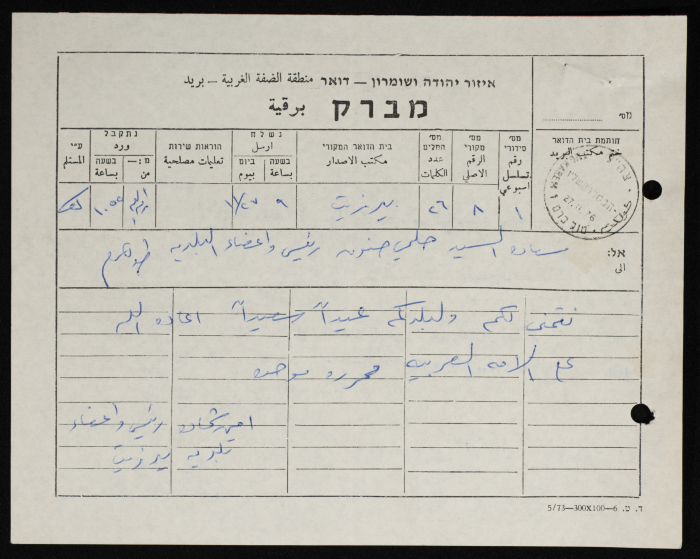 איזור יהודה ושומרון — דואר منطقة الضفة الغربية — بريد
מברק برقية
מס׳
חותמת בית הדואר
ختم مكتب البريد
מס׳ סידורי رقم تسلسل اسبوعي
מס׳ מקורי الرقم الاصلي
מס׳ המלים عدد الكلمات
בית הדואר המקורי مكتب الاصدار
נשלח ارسل
בשעה بساعة
ביום بيوم
הוראות שירות تعليمات مصلحية
נתקבל ورد
מ:— من
בשעה بساعة
ע״י المستلم
١ ٨ ٢٦ بيرزيت ٩
אל: الى
سعادة السيد حلمي حنون رئيس واعضاء البلدية
نتمنى لكم ولبلدكم عيداً سعيداً اعاده الله
على الامة العربية محررة موحده
رئيس واعضاء
بلدية بيرزيت
ד. ט. 5/73—300X100—6